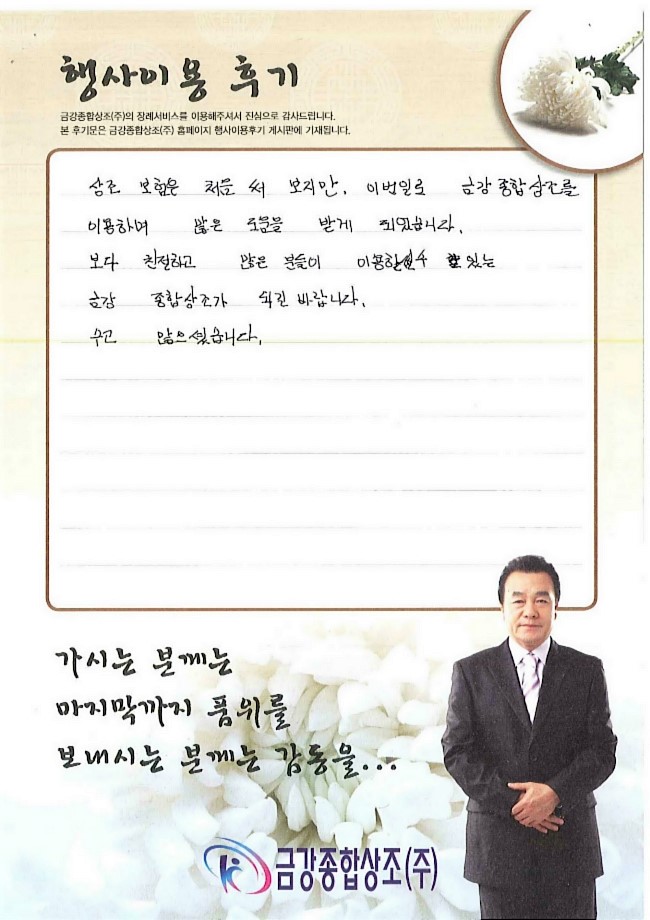 행사이용 후기
금강종합상조(주)의 장례서비스를 이용해주셔서 진심으로 감사드립니다.
본 후기문은 금강종합상조(주) 홈페이지 행사이용후기 게시판에 기재됩니다.
상조 보험은 처음 써 보지만, 이번일로 금강종합상조를
이용하며 많은 도움을 받게 되었습니다.
보다 친절하고 많은 분들이 이용할 수 있는
금강 종합상조가 되길 바랍니다.
수고 많으셨습니다.
가시는 분께는
마지막까지 품위를
보내시는 분께는 감동을...
금강종합상조(주)